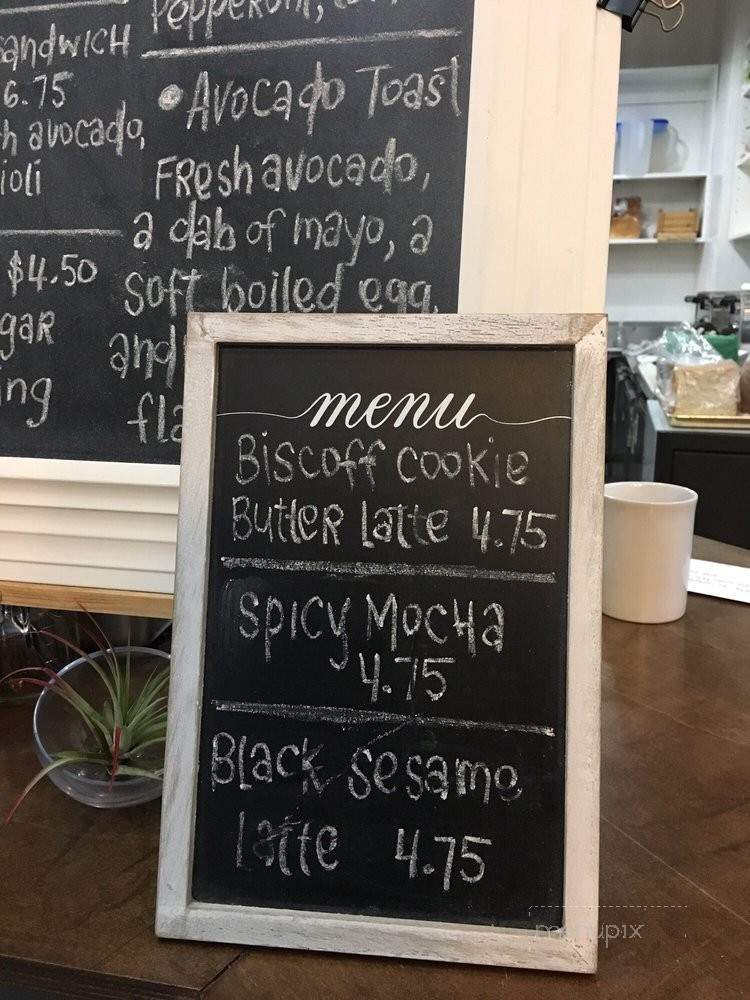 Sandwich
6.75
avocado,
$4.50
Pepperoni,
• Avocado Toast
Fresh avocado,
a dab of mayo, a
soft boiled egg
and
menu
Biscoff cookie
Butter Latte 4.75
Spicy Mocha
4.75
Black Sesame
Latte 4.75
menupix